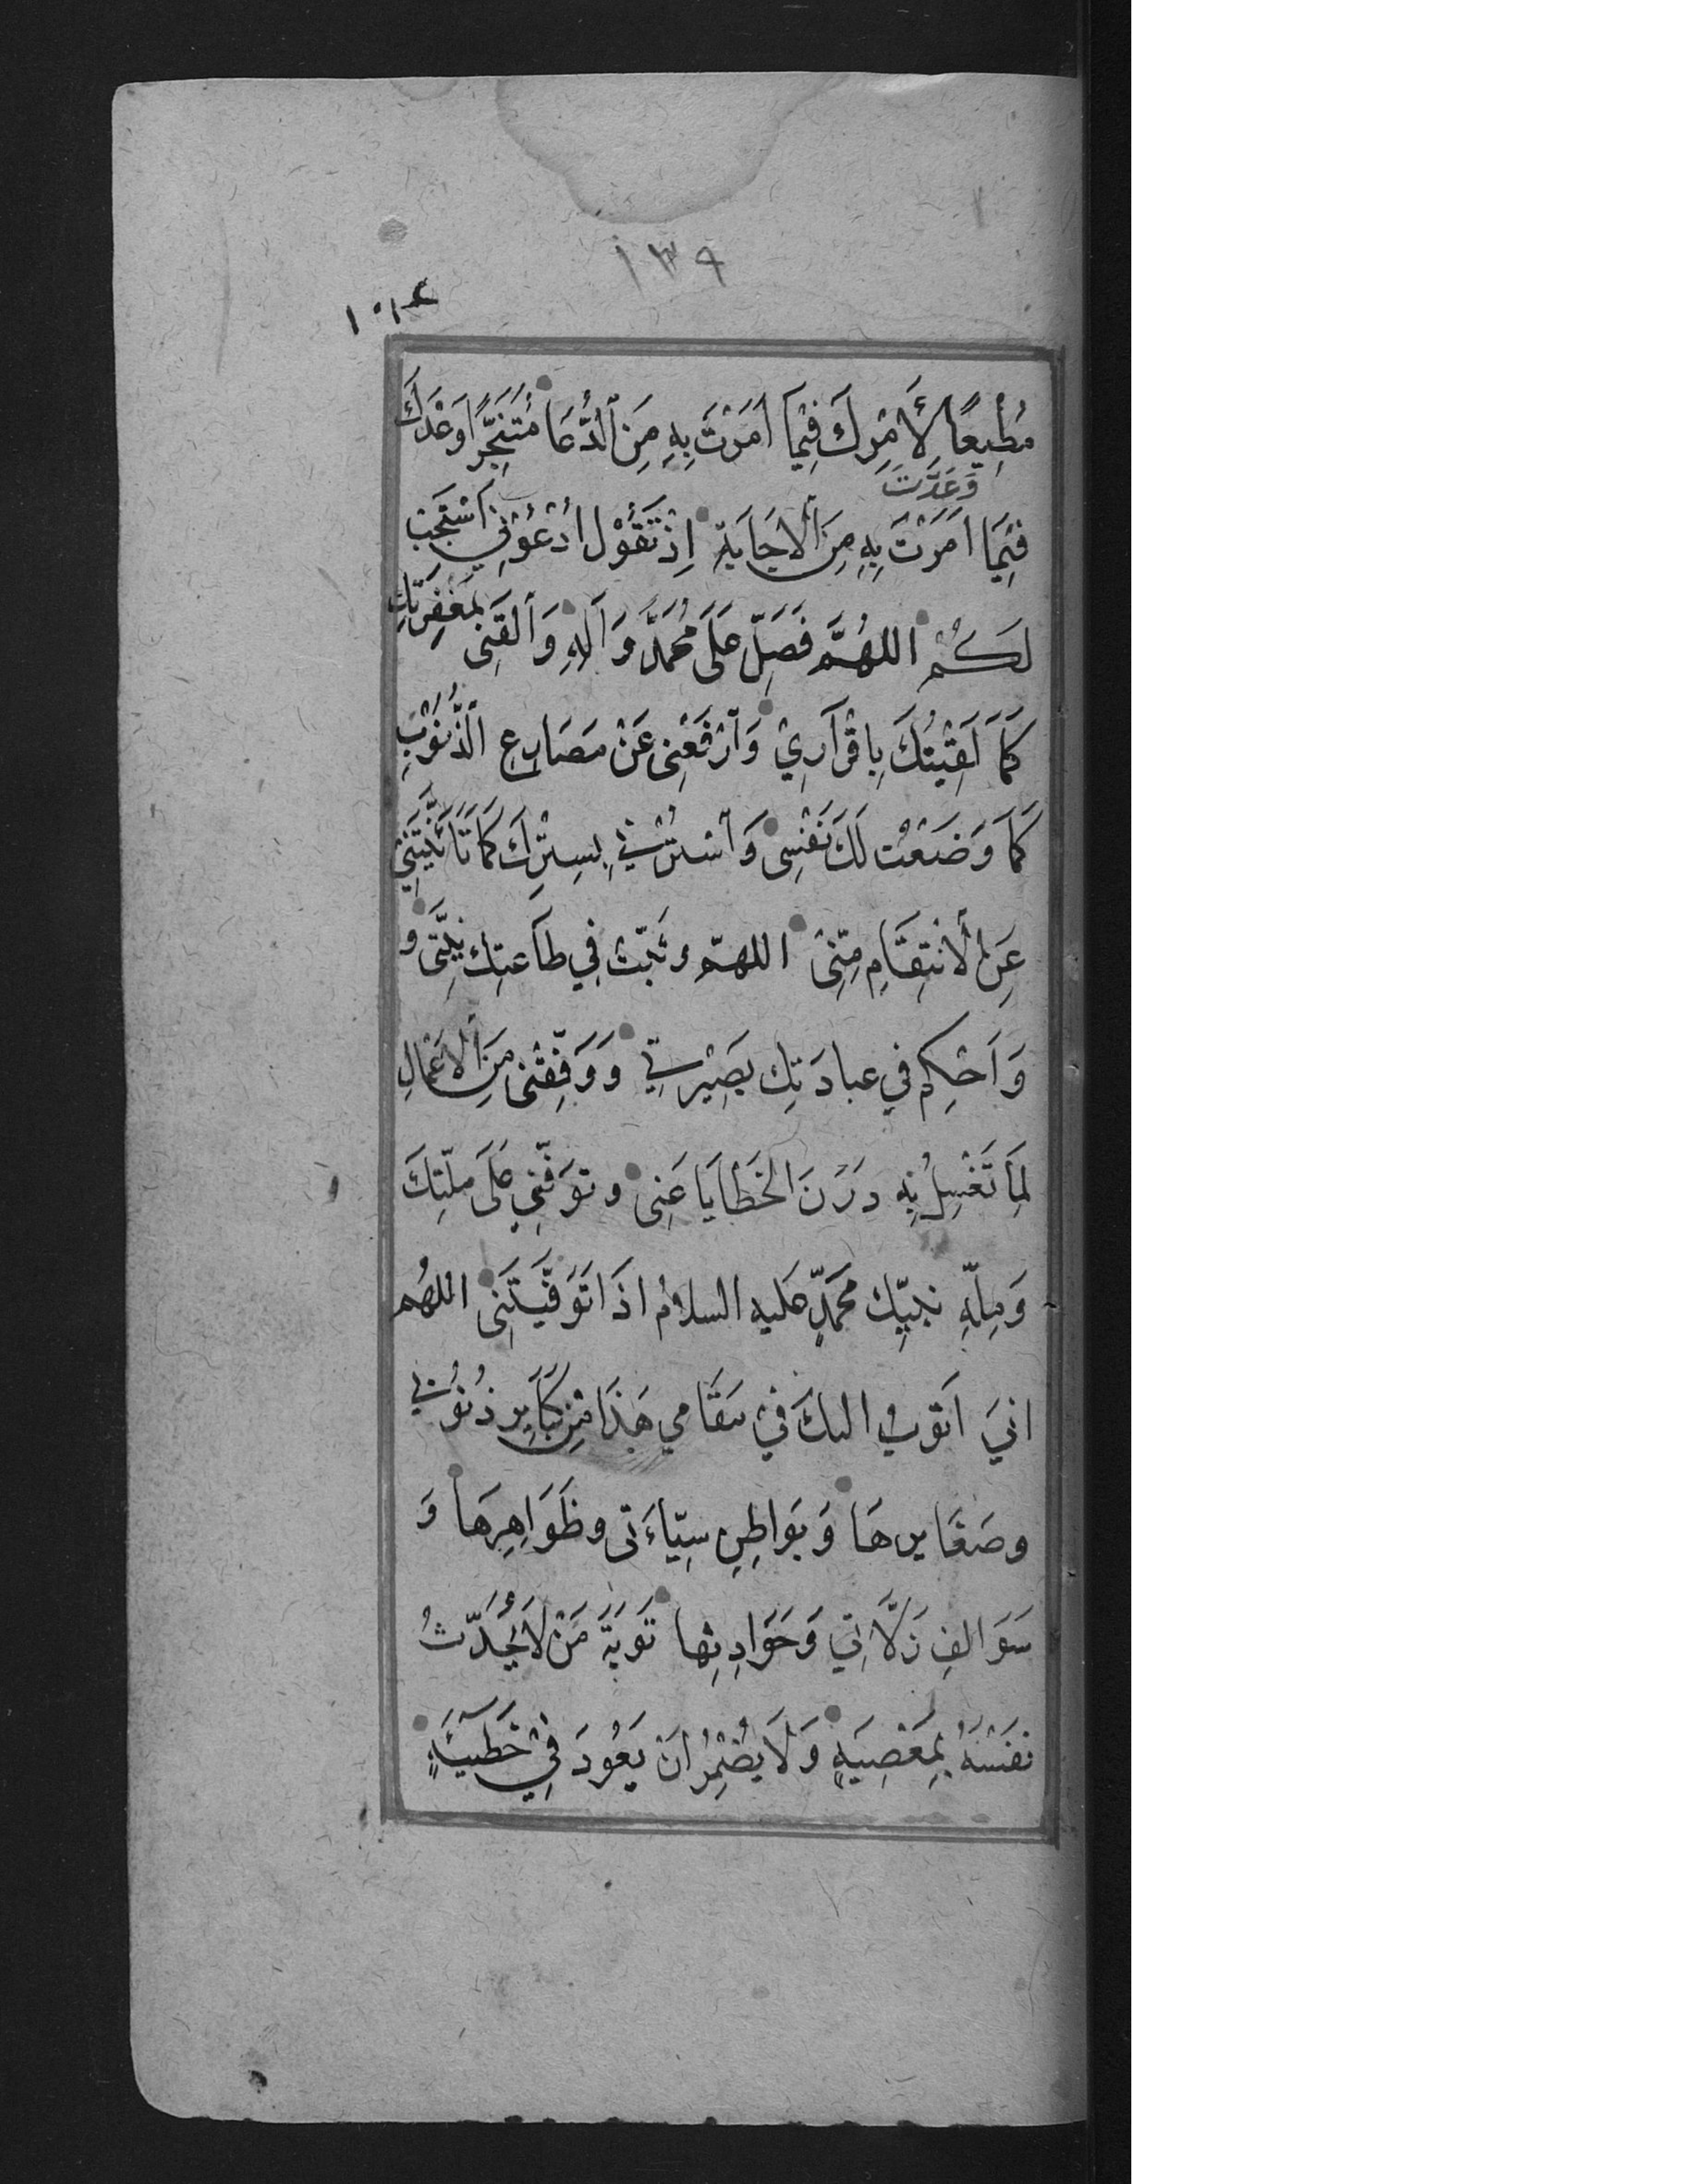 ١٣٩
١٠١٤
مُطِيعًا لِأَمْرِكَ فِيْمَا اَمَرْتَ بِهِ مِنَ ٱلدُّعَا مُتَنَجِّزًا وَعْدَكَ
وَعَدْتَ
فِيْمَا اَمَرْتَ بِهِ مِنَ ٱلْاِجَابَةِ اِذْ تَقُوْلُ اُدْعُوْنِي اَسْتَجِبْ
لَكُمْ اللهُمَّ فَصَلِّ عَلَى مُحَمَّدٍ وَآلِهِ وَٱلْقَنِى بِمَغْفِرَتِكَ
كَمَا لَقِيْتُكَ بِاِقْرَارِيْ وَٱرْفَعْنِى عَنْ مَصَارِعِ ٱلذُّنُوْبِ
كَمَا وَضَعْتُ لَكَ نَفْسِى وَٱسْتُرْنِي بِسِتْرِكَ كَمَا تَأَنَّيْتَنِي
عَنِ ٱلْاِنْتِقَامِ مِنِّى اللهمّ وثَبِّتْ فِي طَاعَتِكَ نِيَّتِى و
وَاَحْكِمْ في عبادَتِك بَصِيْرَتِي وَوَفِّقْنِى مِنَ ٱلْاَعْمَالِ
لِمَا تَغْسِلُ بِهِ دَرَنَ الخَطَايَا عَنِى وتَوَفَّنِي عَلَى مِلَّتِكَ
وَمِلَّةِ نَبِيِّك مُحَمَّدٍ عليه السلامُ اذَا تَوَفَّيْتَنِى اللهُم
انيَ اَتوبُ اليكَ فِيْ مَقَامِي هَذَا مِنْ كَبَايِرِ ذُنُوْبِي
وصَغَايرهَا وَبَوَاطِنِ سيِّاءَتى وظَوَاهِرِهَا وَ
سَوَالِفِ زَلَّاتِي وَحَوَادِثِها تَوبَةَ مَنْ لَا يُحَدِّثُ
نَفْسَهُ بِمَعْصِيَةٍ وَلَا يُضْمِرُ انَ يَعُودَ فِيْ خَطِيْئَةٍ